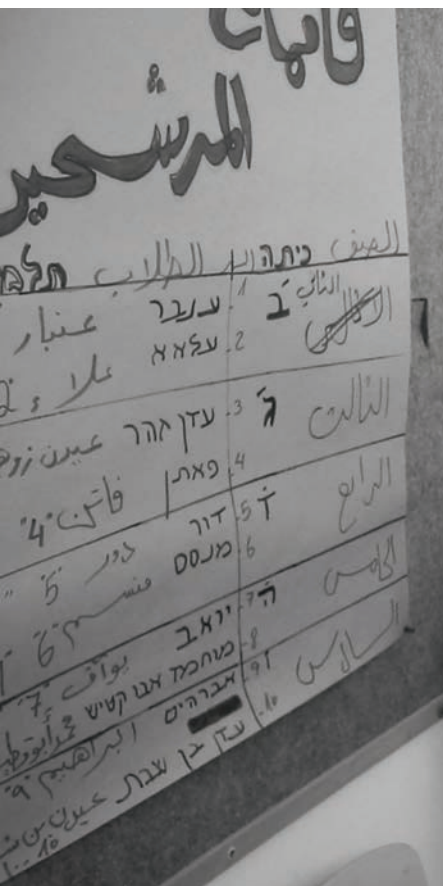 قائمة
المرشحين
الصف כיתה الطلاب
الثاني ב 1. ענבר عنبار
2. עלאא علاء
الثالث ג 3. עדן זוהר عيدن
4. פאתן فاتن "4"
الرابع ד 5. דור دور "5"
6. מנסס منسم "6"
الخامس ה 7. יואב يوآف "7"
8. מוחמד אבו קטיש محمد أبو
السادس ו 9. אברהים ابراهيم "9"
10. עדן בן שבת عيدن بن